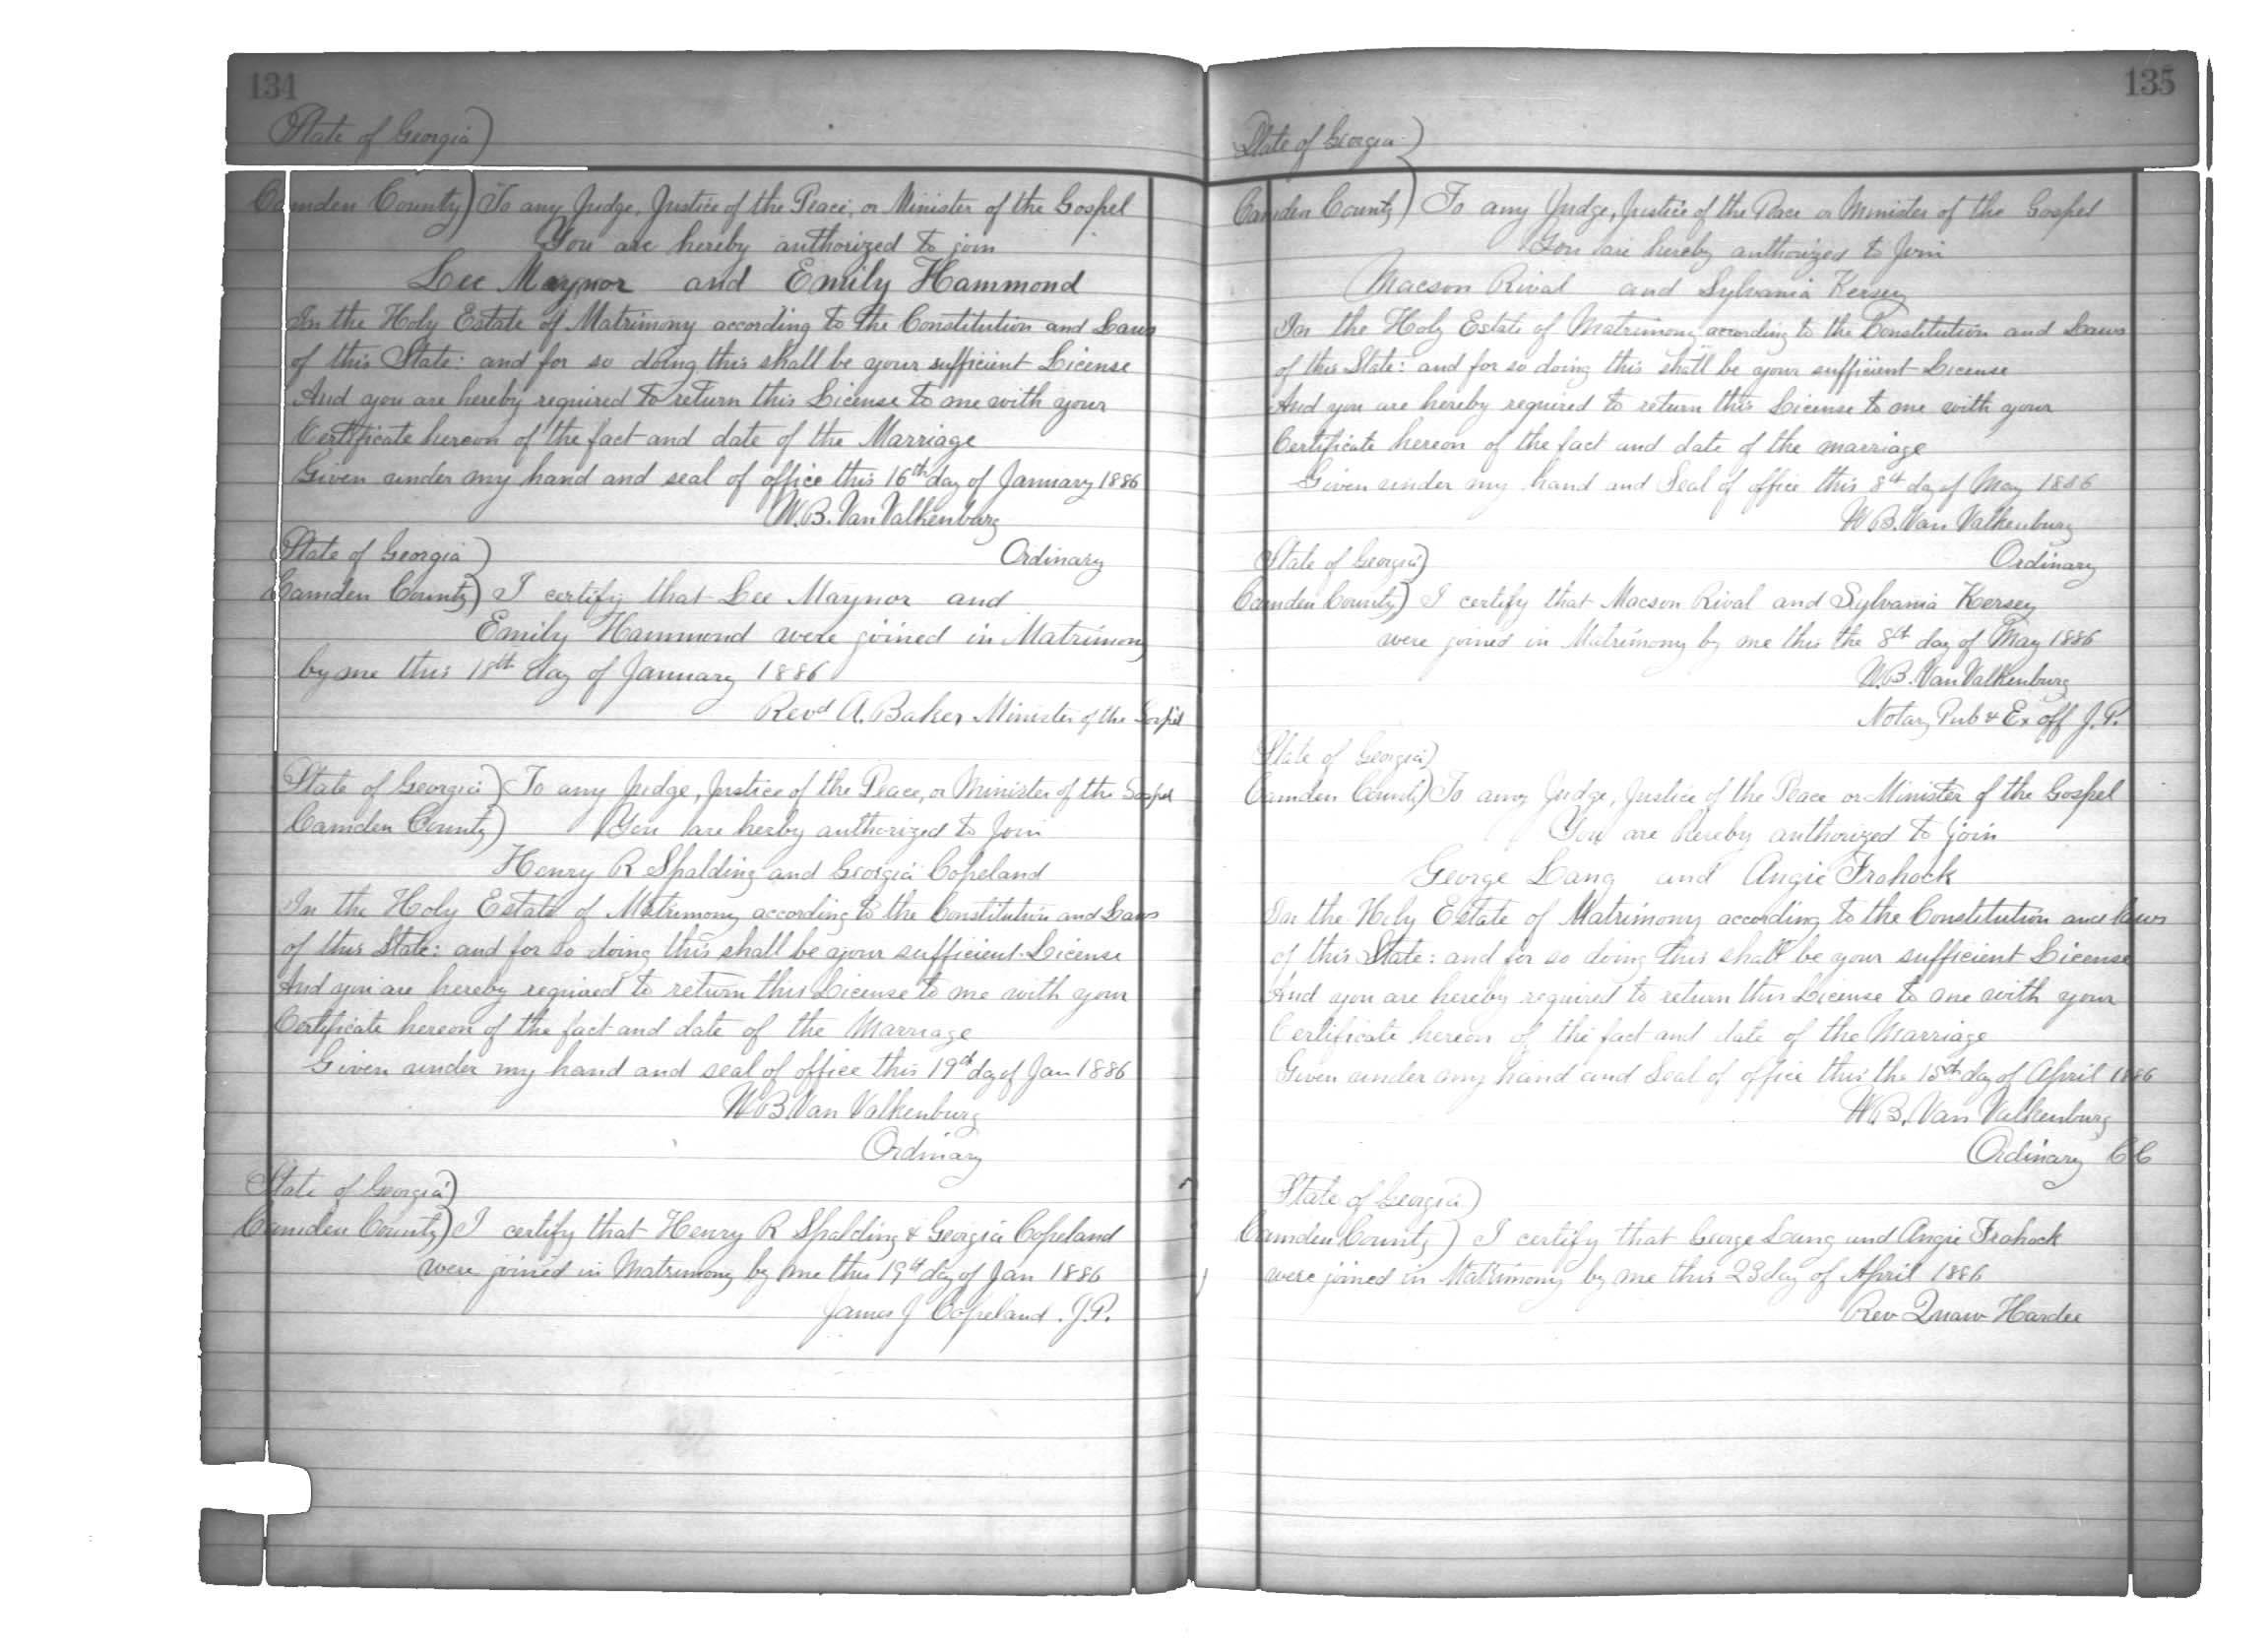 134
State of Georgia)
Camden County) To any Judge, Justice of the Peace, or Minister of the Gospel
You are hereby authorized to join
Lee Maynor and Emily Hammond
In the Holy Estate of Matrimony according to the Constitution and Laws
of this State: and for so doing this shall be your sufficient License
And you are hereby required to return this License to me with your
Certificate hereon of the fact and date of the Marriage
Given under my hand and seal of office this 16th day of January 1886
W.B. Van Valkenburg
Ordinary
State of Georgia)
Camden County) I certify that Lee Maynor and
Emily Hammond were joined in Matrimony
by me this 18th day of January 1886
Revd A. Baker Minister of the Gospel
State of Georgia) To any Judge, Justice of the Peace, or Minister of the Gospel
Camden County) You are herby authorized to Join
Henry R Spalding and Georgia Copeland
In the Holy Estate of Matrimony according to the Constitution and Laws
of this State: and for so doing this shall be your sufficient License
And you are hereby required to return this License to me with your
Certificate hereon of the fact and date of the Marriage
Given under my hand and seal of office this 19th day of Jan 1886
W B Van Valkenburg
Ordinary
State of Georgia)
Camden County) I certify that Henry R Spalding & Georgia Copeland
were joined in Matrimony by me this 19th day of Jan 1886
James J Copeland. J.P.
135
State of Georgia)
Camden County) To any Judge, Justice of the Peace or Minister of the Gospel
You are hereby authorized to Join
Macson Rival and Sylvania Kersey
In the Holy Estate of Matrimony according to the Constitution and Laws
of this State: and for so doing this shall be your sufficient License
And you are hereby required to return this License to me with your
Certificate hereon of the fact and date of the marriage
Given under my hand and Seal of office this 8th day of May 1886
W B. Van Valkenburg
Ordinary
State of Georgia)
Camden County) I certify that Macson Rival and Sylvania Kersey
were joined in Matrimony by me this the 8th day of May 1886
W.B. Van Valkenburg
Notary Pub & Ex off J.P.
State of Georgia)
Camden County) To any Judge, Justice of the Peace or Minister of the Gospel
You are hereby authorized to join
George Lang and Angie Frohock
In the Holy Estate of Matrimony according to the Constitution and laws
of this State: and for so doing this shall be your sufficient License
And you are hereby required to return this License to me with your
Certificate hereon of the fact and date of the Marriage
Given under my hand and Seal of office this the 15th day of April 1886
W.B. Van Valkenburg
Ordinary C C
State of Georgia)
Camden County) I certify that George Lang and Angie Frohock
were joined in Matrimony by me this 23 day of April 1886
Rev Hardee